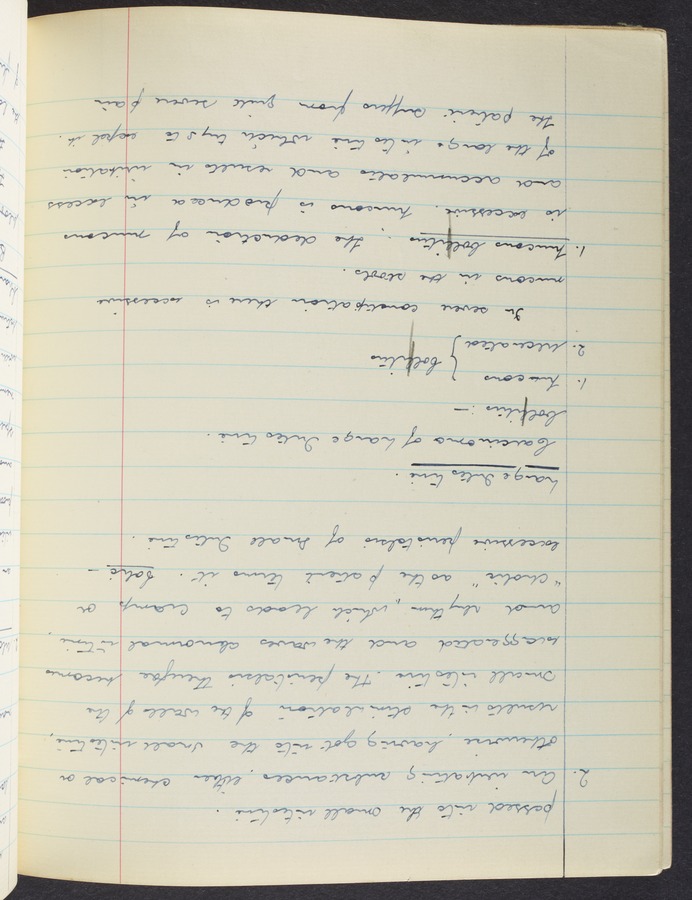 passed into the small intestine.
2. An irritating substances, either chemical or
otherwise, having got into the small intestine,
results in the stimulation of the walls of the
small intestine. The peristalsis therefore becomes
exaggerated and the waves abnormal in time,
and rhythm, which leads to cramp or
"cholic" as the patient terms it. Colic —
excessive peristalsis of small Intestine.
Large Intestine.
Carcinoma of Large Intestine.
Collitis: —
1. Mucous } Collitis
2. Ulcerated
In severe constipation there is excessive
mucous in the stools.
1. Mucous Collitis; the deduction of mucous
is excessive. Mucous is produced in excess
and accumulates and results in irritation
of the large intestine which trys to expel it.
The patient suffers from quite severe pain